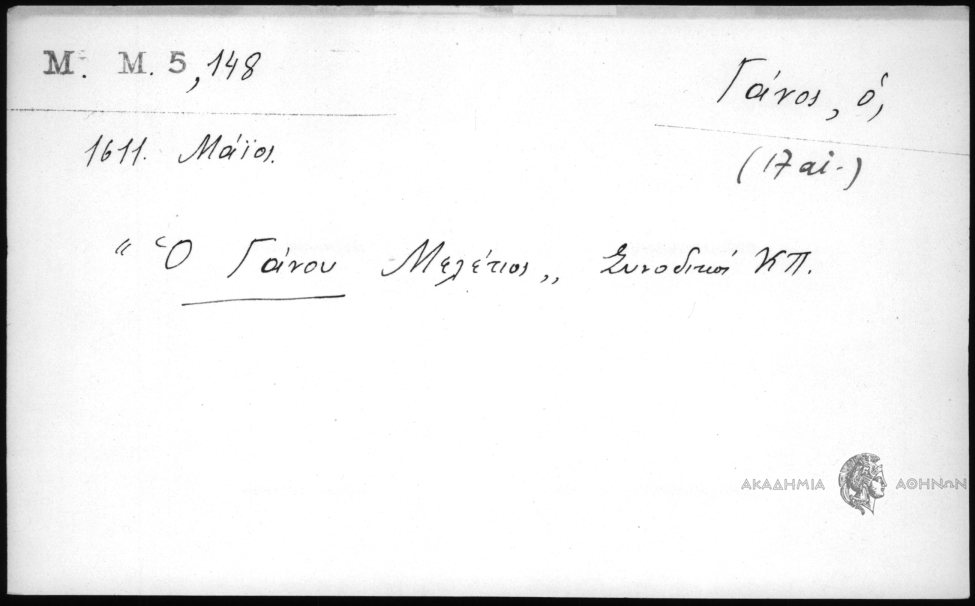 M. M. 5, 148
Γάνος, ὁ,
(17 αἰ.)
1611. Μάϊος.
"Ὁ Γάνου Μελέτιος„ Συνοδικοί ΚΠ.
ΑΚΑΔΗΜΙΑ ΑΘΗΝΩΝ